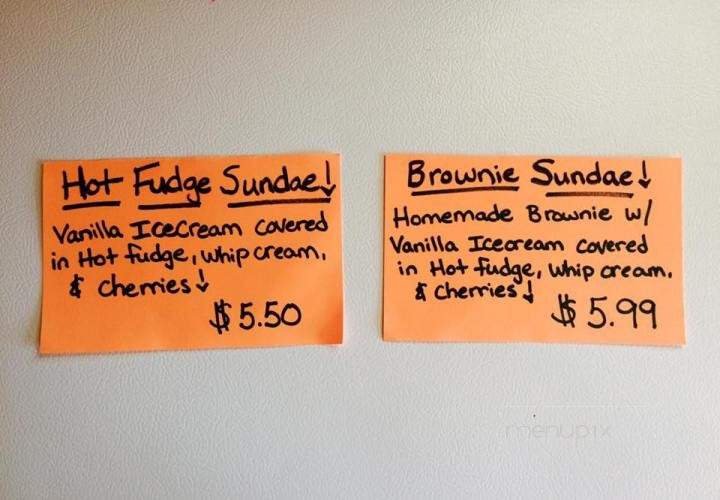 Hot Fudge Sundae!
Vanilla IceCream covered
in Hot fudge, whip cream,
& cherries!
$5.50
Brownie Sundae!
Homemade Brownie w/
Vanilla Icecream covered
in Hot fudge, whip cream,
& cherries!
$5.99
menupix